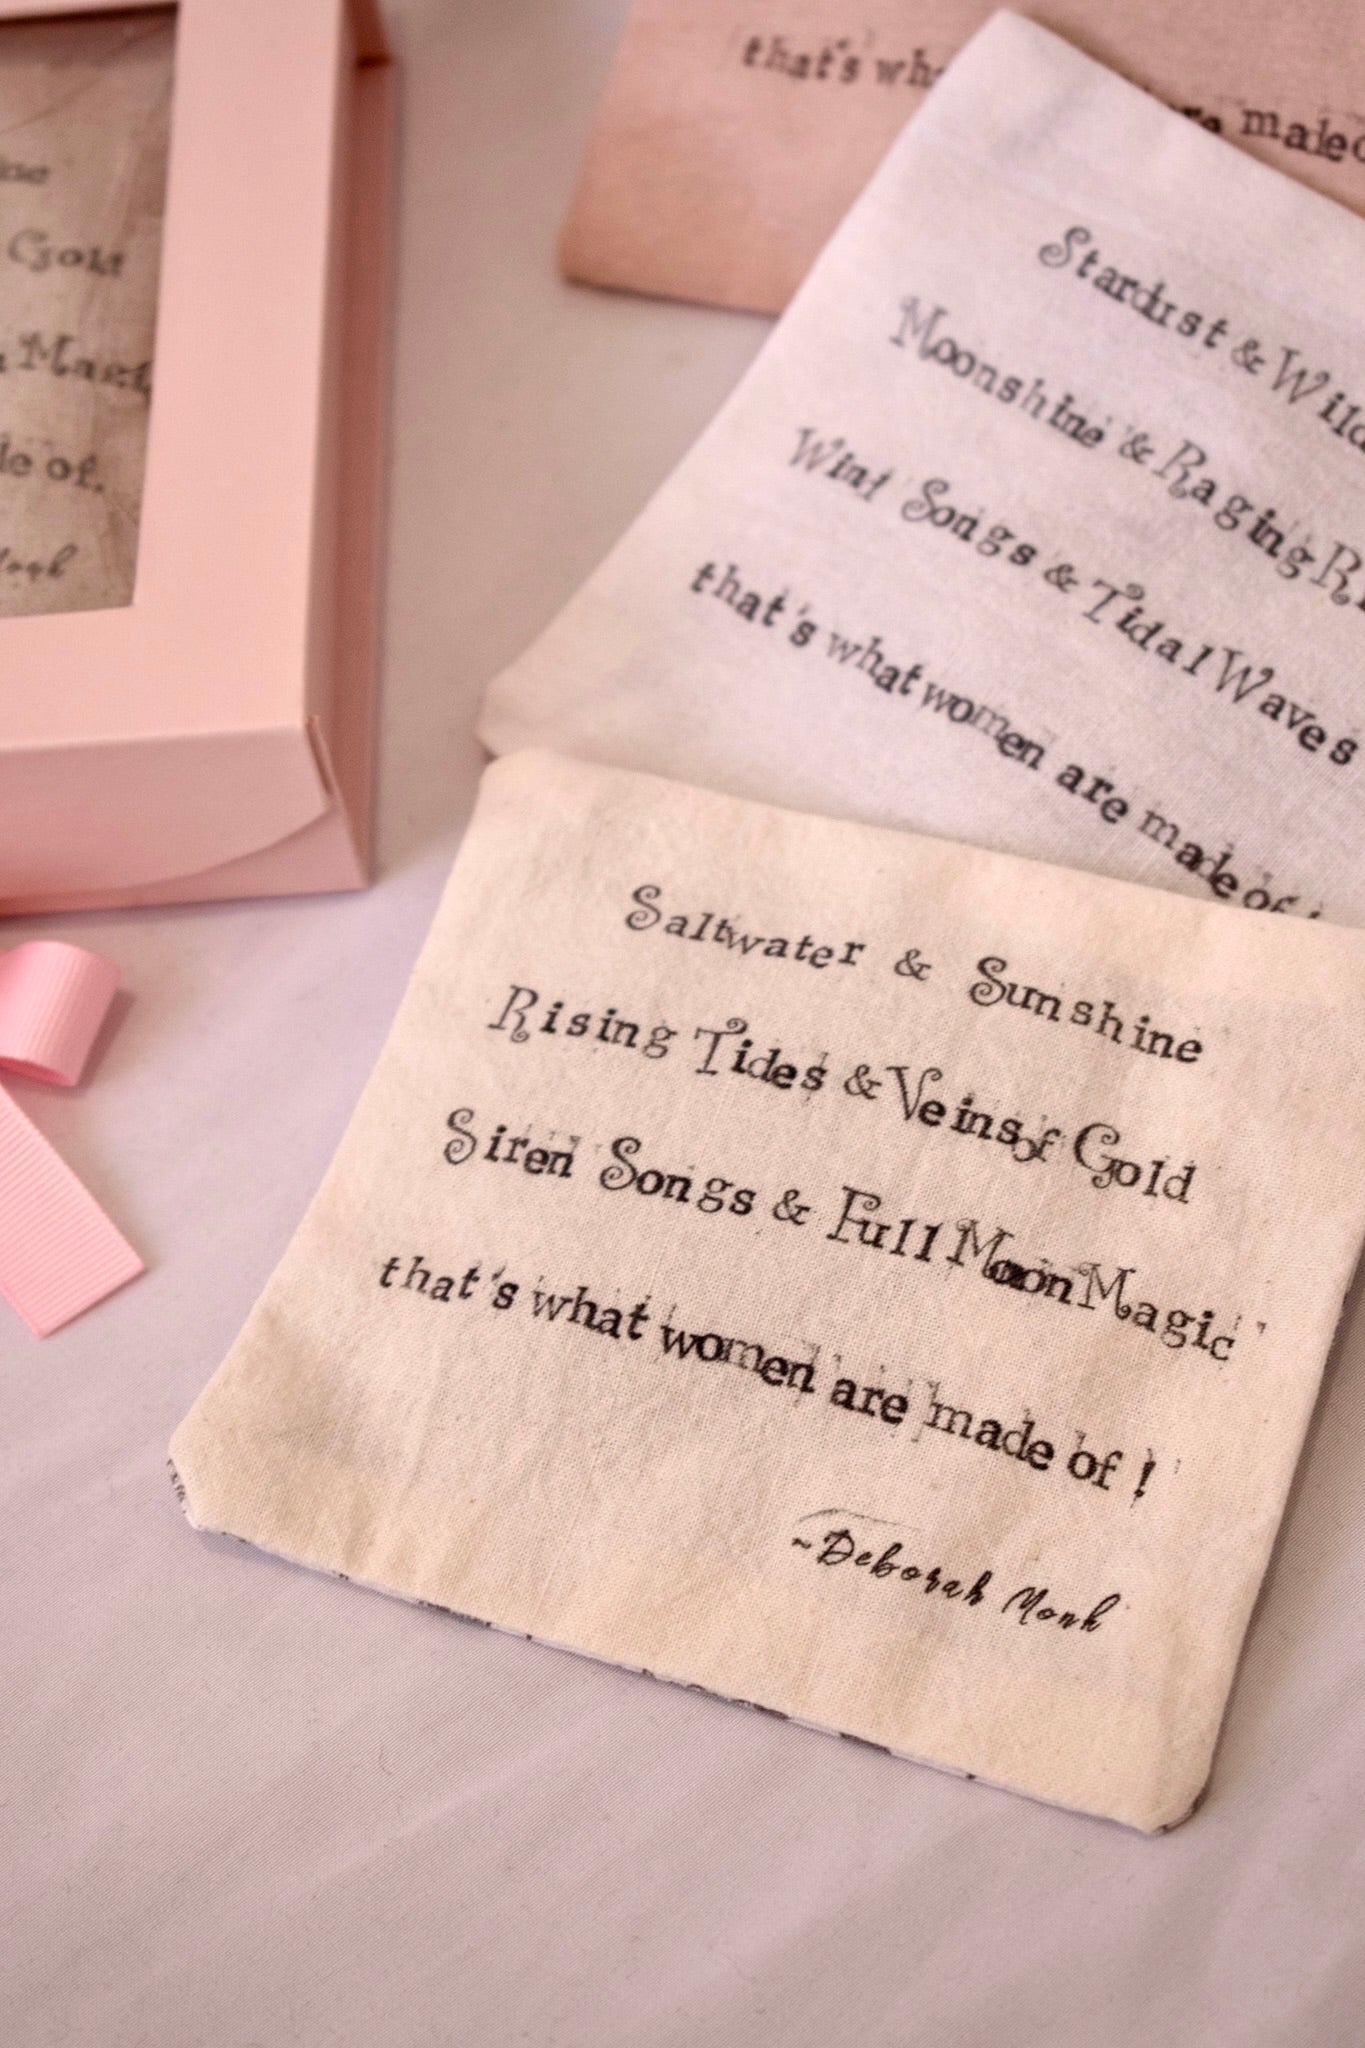 Gold
de of.
that's
made
Stardust & Wild
Moonshine & Raging
Wind Songs & Tidal Waves
that's what women are made of
Saltwater & Sunshine
Rising Tides & Veins of Gold
Siren Songs & Full Moon Magic
that's what women are made of !
~Deborah Monk